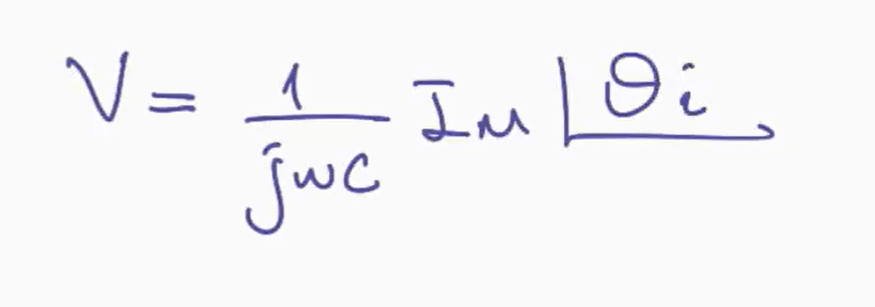 V = 1/jωC Im ∠θi